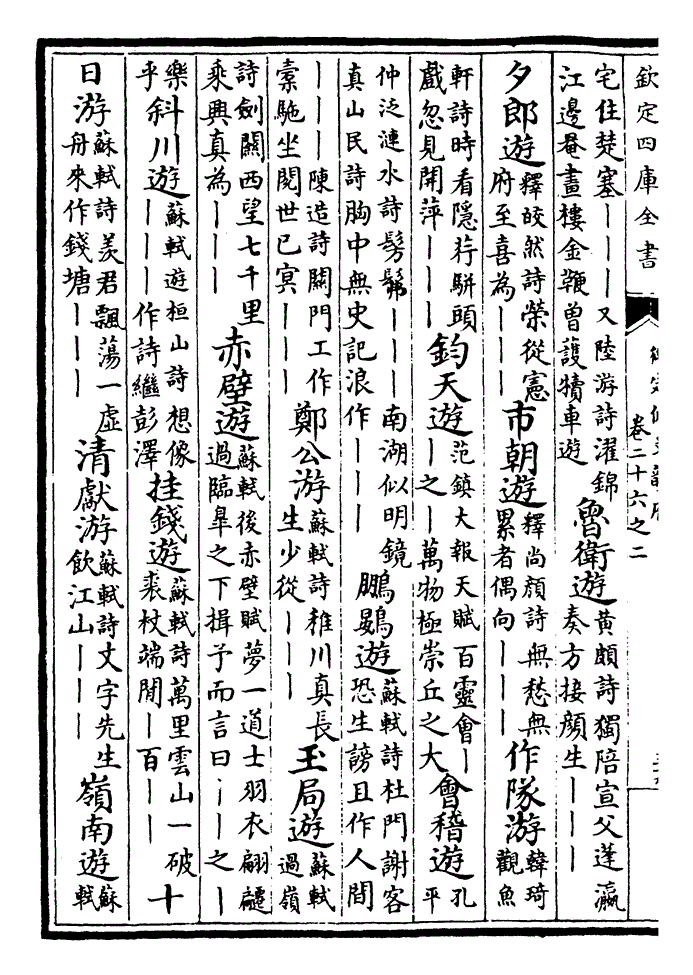 欽定四庫全書
卷二十六之二
宅住楚塞｜｜｜又陸游詩濯錦
江邊菴畫樓金鞭曾護犢車遊
魯衛遊
黄頗詩獨陪宣父蓬瀛
奏方接顔生｜｜｜
夕郎遊
釋皎然詩榮從憲
府至喜為｜｜｜
市朝遊
釋尚顔詩無愁無
累者偶向｜｜｜
作隊游
韓琦
觀魚
軒詩時看隱荇駢頭
戲忽見開萍｜｜｜
鈞天遊
范鎮大報天賦百靈會｜
｜｜之｜萬物極崇丘之大
會稽遊
孔
平
仲泛漣水詩髣髴｜｜｜南湖似明鏡
真山民詩胸中無史記浪作｜｜｜
鵬鷃遊
蘇軾詩杜門謝客
恐生謗且作人間
｜｜｜陳造詩關門工作
槖駞坐閱世已㝠｜｜｜
鄭公游
蘇軾詩稚川真長
生少從｜｜｜
玉局遊
蘇軾
過嶺
詩劍關西望七千里
乘興真為｜｜｜
赤壁遊
蘇軾後赤壁賦夢一道士羽衣翩躚
過臨臯之下揖予而言曰｜｜之｜
樂
乎
斜川遊
蘇軾遊桓山詩想像
｜｜｜作詩繼彭澤
挂錢遊
蘇軾詩萬里雲山一破
裘杖端閒｜百｜｜
十
日游
蘇軾詩羡君飄蕩一虛
舟來作錢塘｜｜｜
清獻游
蘇軾詩文字先生
飲江山｜｜｜
嶺南遊
蘇
軾